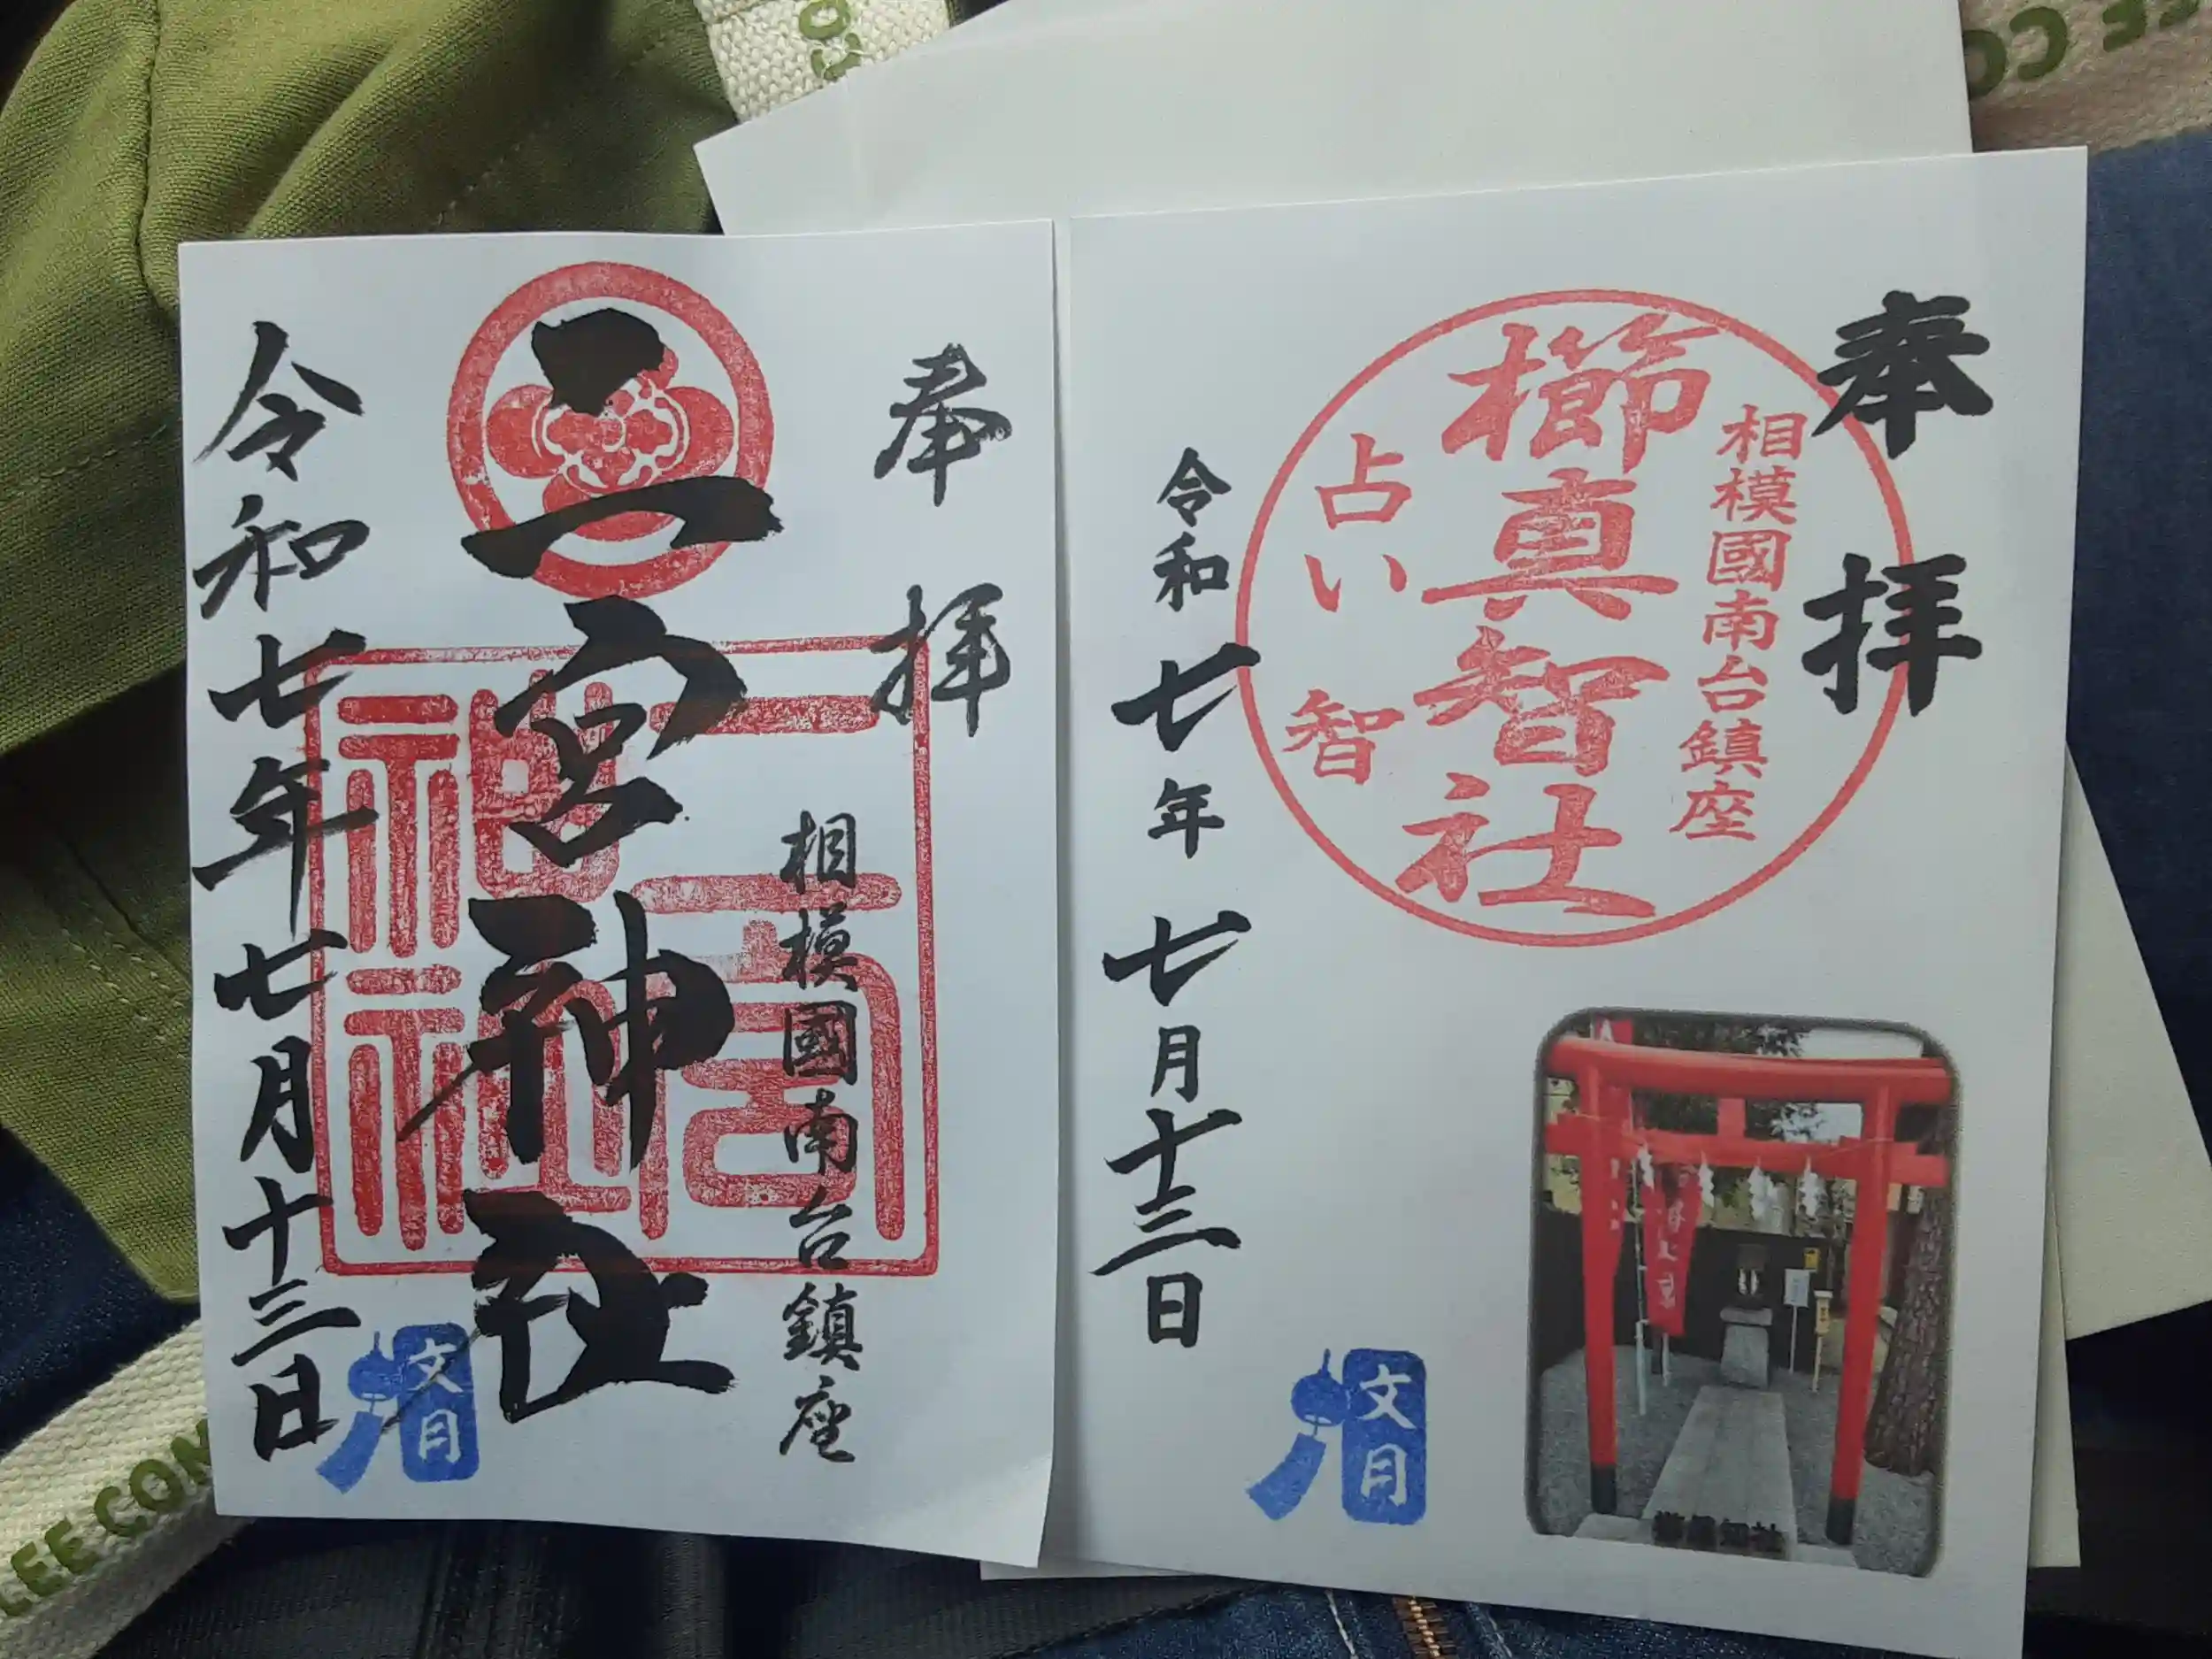 奉拝
相模國南台鎮座
櫛真智社
占い 智
令和七年七月十三日
文月
奉拝
相模國南台鎮座
二宮神社
二宮神社
令和七年七月十三日
文月
LEE CON
EE CO